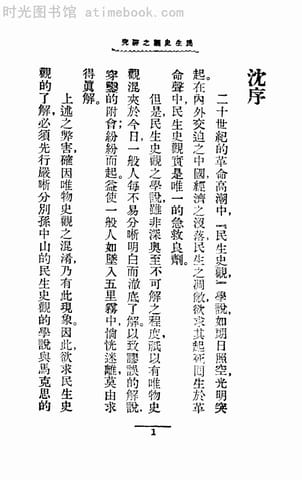 时光图书馆 · atimebook.com
民生史觀之研究
沈序
二十世紀的革命高潮中,『民生史觀』學說如朗日照空,光明突
起。在內外交迫之中國經濟之沒落民生之凋敝,欲求其起死回生於革
命聲中民生史觀實是唯一的急救良劑。
但是民生史觀之學說,雖非深奧至不可解之程度,祇以有唯物史
觀混夾於今日一般人每不易分晰明白而澈底了解。以致謬誤的解說,
穿鑿的附會紛紛而起。益使一般人如墜入五里霧中,惝恍迷離,莫由求
得眞解。
上述之弊害,確因唯物史觀之混淆,乃有此現象。因此,欲求民生史
觀的了解,必須先行嚴晰分別孫中山的民生史觀的學說與馬克思的
1